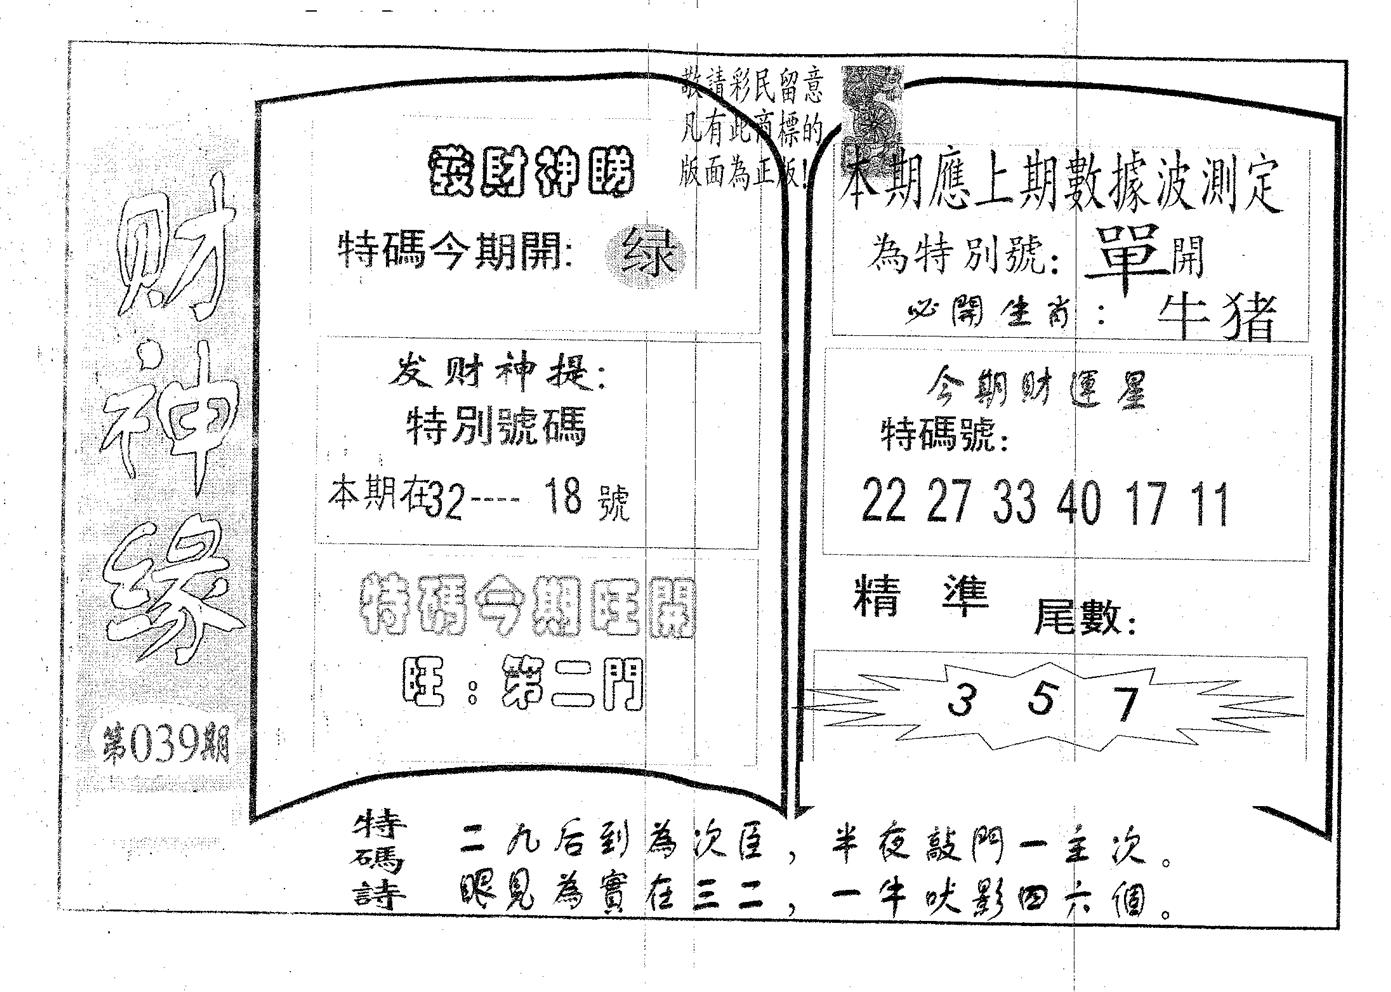 财神缘
第039期
敬請彩民留意
凡有此商標的
版面為正版!
發财神睇
特碼今期開: 绿
发财神提:
特別號碼
本期在32---- 18 號
特碼今期旺開
旺:第二門
本期應上期數據波測定
為特別號: 單 開
必開生肖: 牛猪
今期財運星
特碼號:
22 27 33 40 17 11
精 準 尾數:
3 5 7
特碼詩
二九后到為次臣,半夜敲門一主次。
眼見為實在三二,一牛吠影四六個。